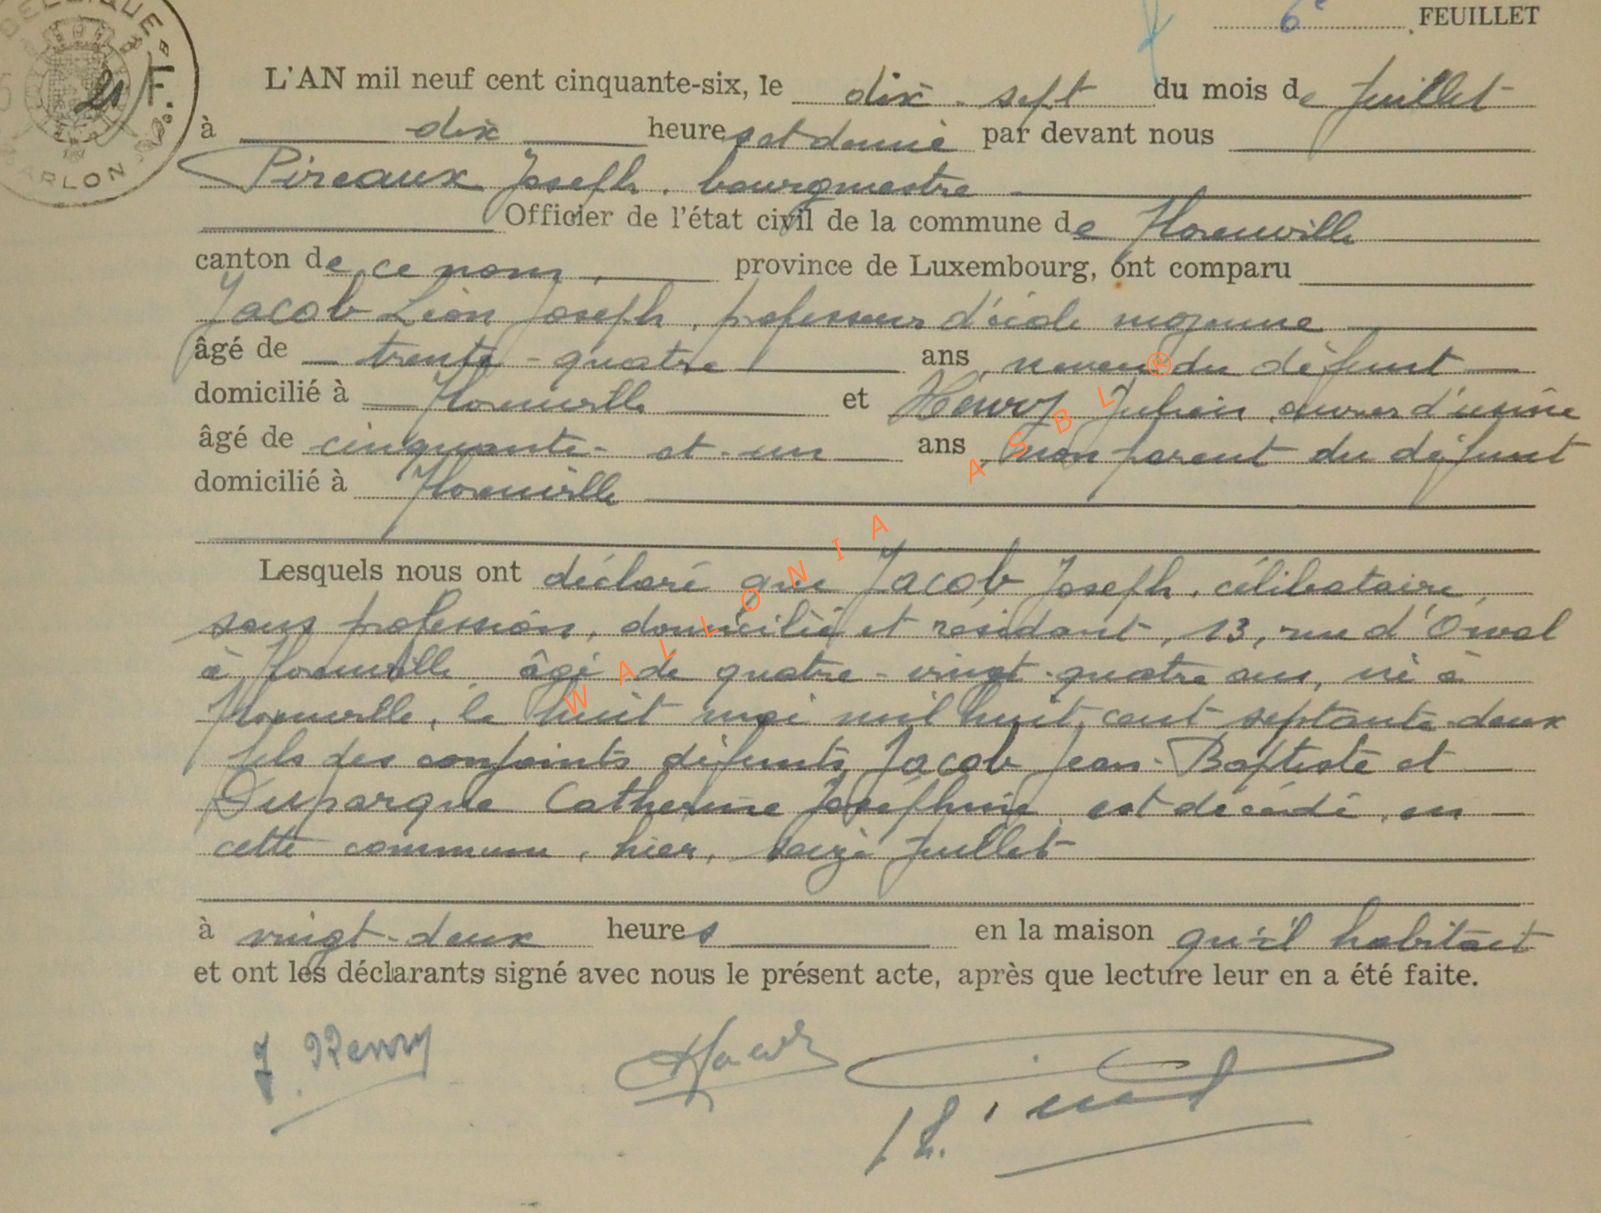 BELGIQUE
F.
ARLON
6e FEUILLET
L'AN mil neuf cent cinquante-six, le dix-sept du mois de Juillet
à dix heures et demie par devant nous
Pireaux Joseph, bourgmestre
Officier de l'état civil de la commune de Florenville
canton de ce nom, province de Luxembourg, ont comparu
Jacob Léon Joseph, professeur d'école moyenne
âgé de trente-quatre ans, neveu du défunt
domicilié à Florenville et Henry Julien, ouvrier d'usine
âgé de cinquante-et-un ans, non parent du défunt
domicilié à Florenville
Lesquels nous ont déclaré que Jacob Joseph, célibataire,
sans profession, domicilié et résidant, 13, rue d'Orval
à Florenville, âgé de quatre-vingt-quatre ans, né à
Florenville, le huit mai mil huit cent septante-deux
fils des conjoints défunts Jacob Jean-Baptiste et
Duparque Catherine Joséphine, est décédé, en
cette commune, hier, seize Juillet
à vingt-deux heures en la maison qu'il habitait
et ont les déclarants signé avec nous le présent acte, après que lecture leur en a été faite.
J. Henry
WALLONIA ASBL ®